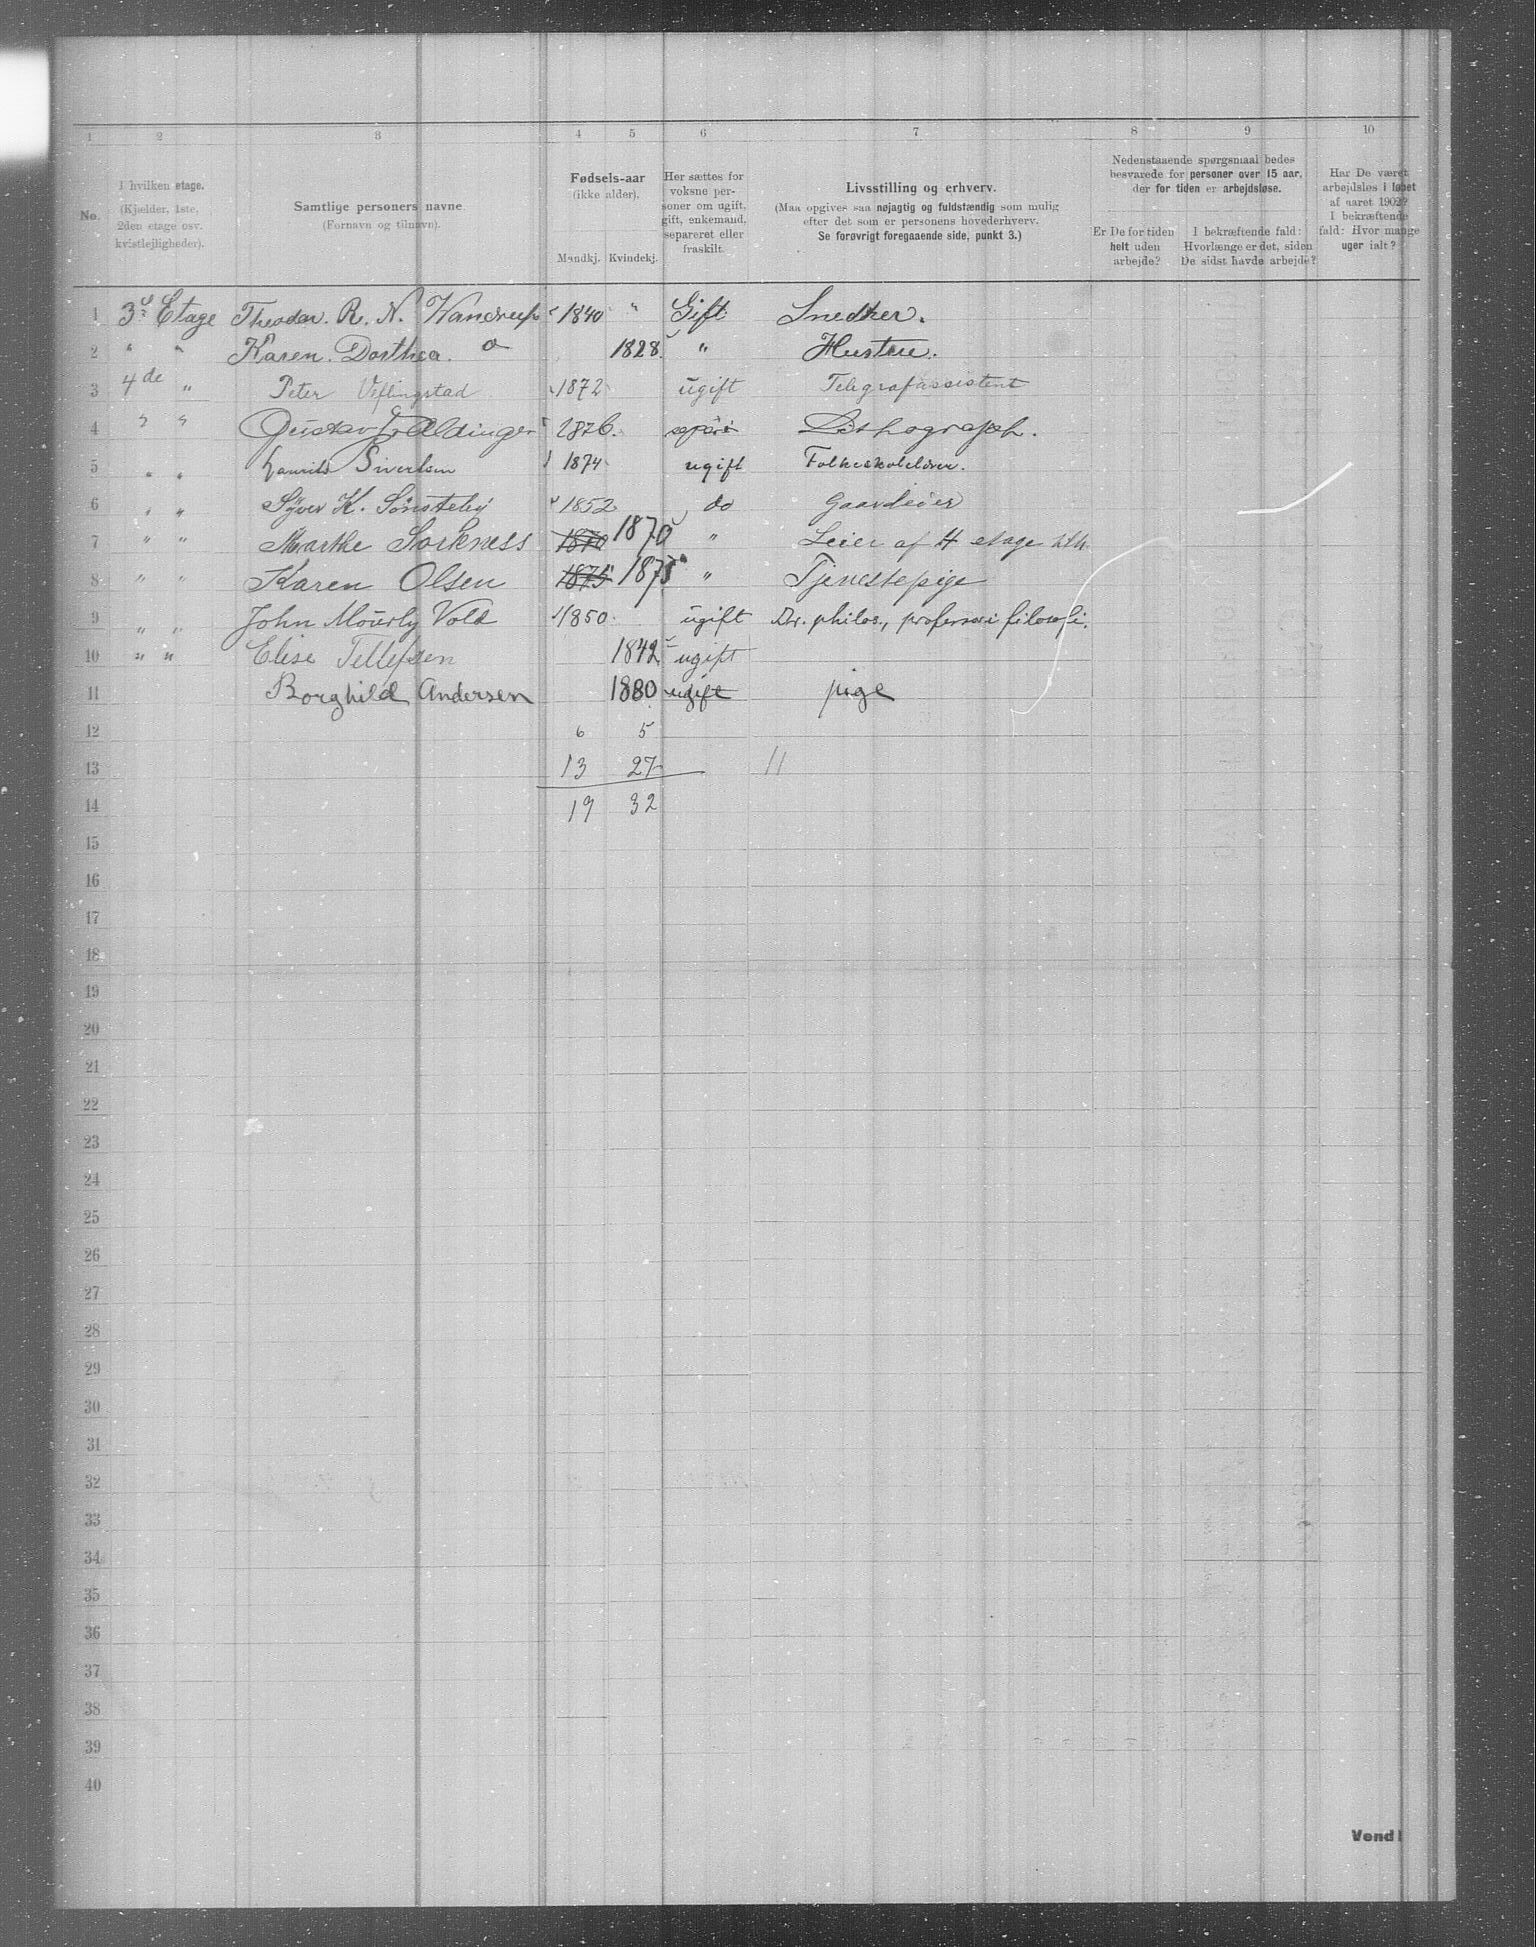 1 2 3 4 5 6 7 8 9 10
No.
I hvilken etage.
(Kjælder, 1ste,
2den etage osv.
kvistlejligheder).
Samtlige personers navne
(Fornavn og tilnavn).
Fødsels-aar
(ikke alder).
Mandkj. Kvindekj.
Her sættes for
voksne per-
soner om ugift,
gift, enkemand,
separeret eller
fraskilt.
Livsstilling og erhverv.
(Maa opgives saa nøjagtig og fuldstændig som mulig
efter det som er personens hovederhverv.
Se forøvrigt foregaaende side, punkt 3.)
Nedenstaaende spørgsmaal bedes
besvarede for personer over 15 aar,
der for tiden er arbejdsløse.
Er De for tiden
helt uden
arbejde?
I bekræftende fald:
Hvorlænge er det, siden
De sidst havde arbejde?
Har De været
arbejdsløs i løbet
af aaret 1902?
I bekræftende
fald: Hvor mange
uger ialt?
1 3d Etage Theodor. R. N. Wandrup 1840 " Gift Snedker.
2 " " Karen. Dorthea. 1828. " Hustru.
3 4de " Peter Veflingstad 1872 ugift Telegrafassistent
4 " " Gustav Aldinger 1876. separ. Lithograph.
5 " " Laurits Sivertsen 1874 ugift Folkeskolelærer.
6 " " Syver K. Sønsteby 1852 do Gaardeier
7 " " Marthe Sorkness 1870 1870 " Leier af 4 etage
8 " " Karen Olsen 1875 1875 " Tjenestepige
9 " " John Mourly Vold 1850 ugift Dr. philos., professor i filosofi.
10 " " Elise Tellefsen 1842 ugift
11 Borghild Andersen 1880 ugift pige
12 6 5
13 13 27 11
14 19 32
15
16
17
18
19
20
21
22
23
24
25
26
27
28
29
30
31
32
33
34
35
36
37
38
39
40
Vend!